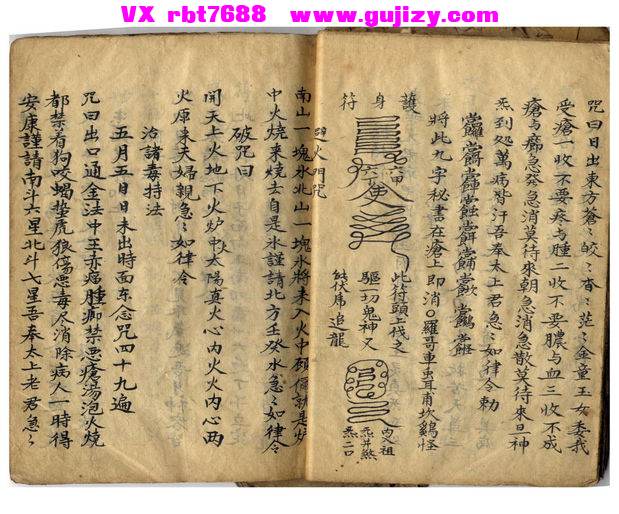 VX rbt7688 www.gujizy.com
咒曰日出東方蒼〻皎〻杳〻茫〻金童玉女委我
受瘡一收不要疼与腫二收不要膿与血三收不成
瘡与癤急発急消莫待來朝急消急散莫待來旦神
炁到処萬病皆汗吾奉太上君急〻如律令勅
將此九字秘書在瘡上即消〇羅哥車䖝耳甫坎鷄怪
護身符
此符頭上伐之
驅切鬼神又
能伏虎追龍
火門咒
南山一塊氷北山一塊氷將來入火中
中火燒來燒去自是氷謹請北方壬癸水急〻如律令
破咒曰
開天上火地下火炉中太陽真火心内火火内心两
火原來夫婦親急〻如律令
治諸毒持法
五月五日日未出時面东念咒四十九遍
咒曰出口通金法中王赤瘟腫卿禁悪瘡湯泡火燒
都禁着狗咬蝎蜇虎狼傷悪毒尽消除病人一時得
安康謹請南斗六星北斗七星吾奉太上老君急〻